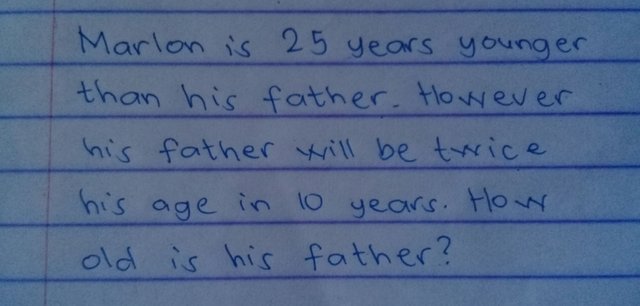 Marlon is 25 years younger
than his father. However
his father will be twice
his age in 10 years. How
old is his father?